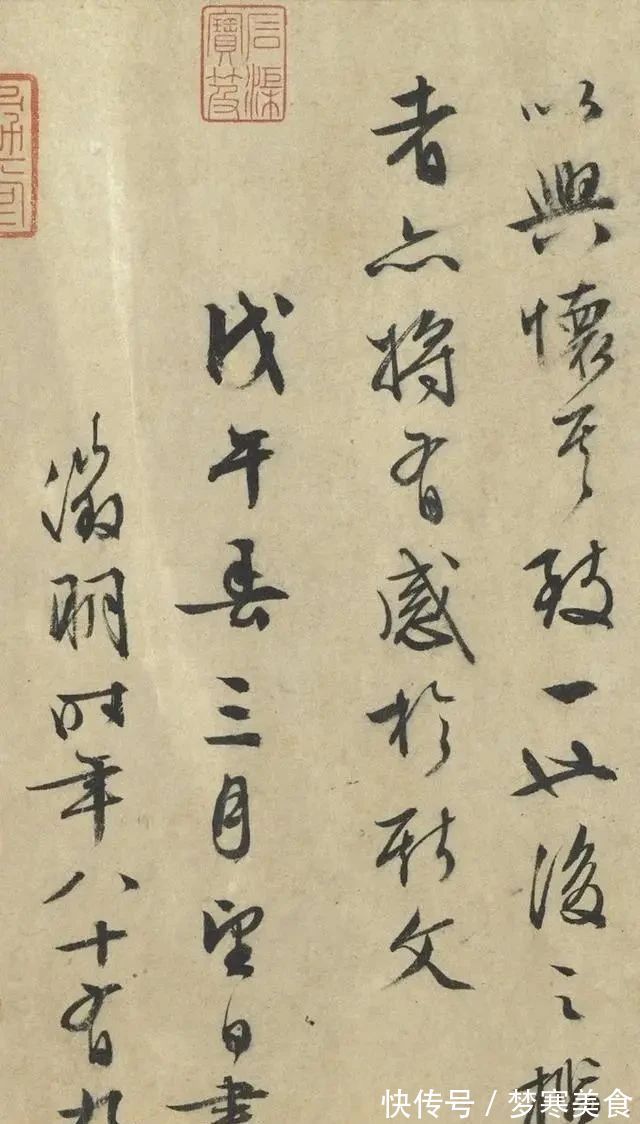 以興懷其致一也後之攬
者亦將有感於斯文
戊午春三月望日書
徵明時年八十有九
快传号/梦寒美食